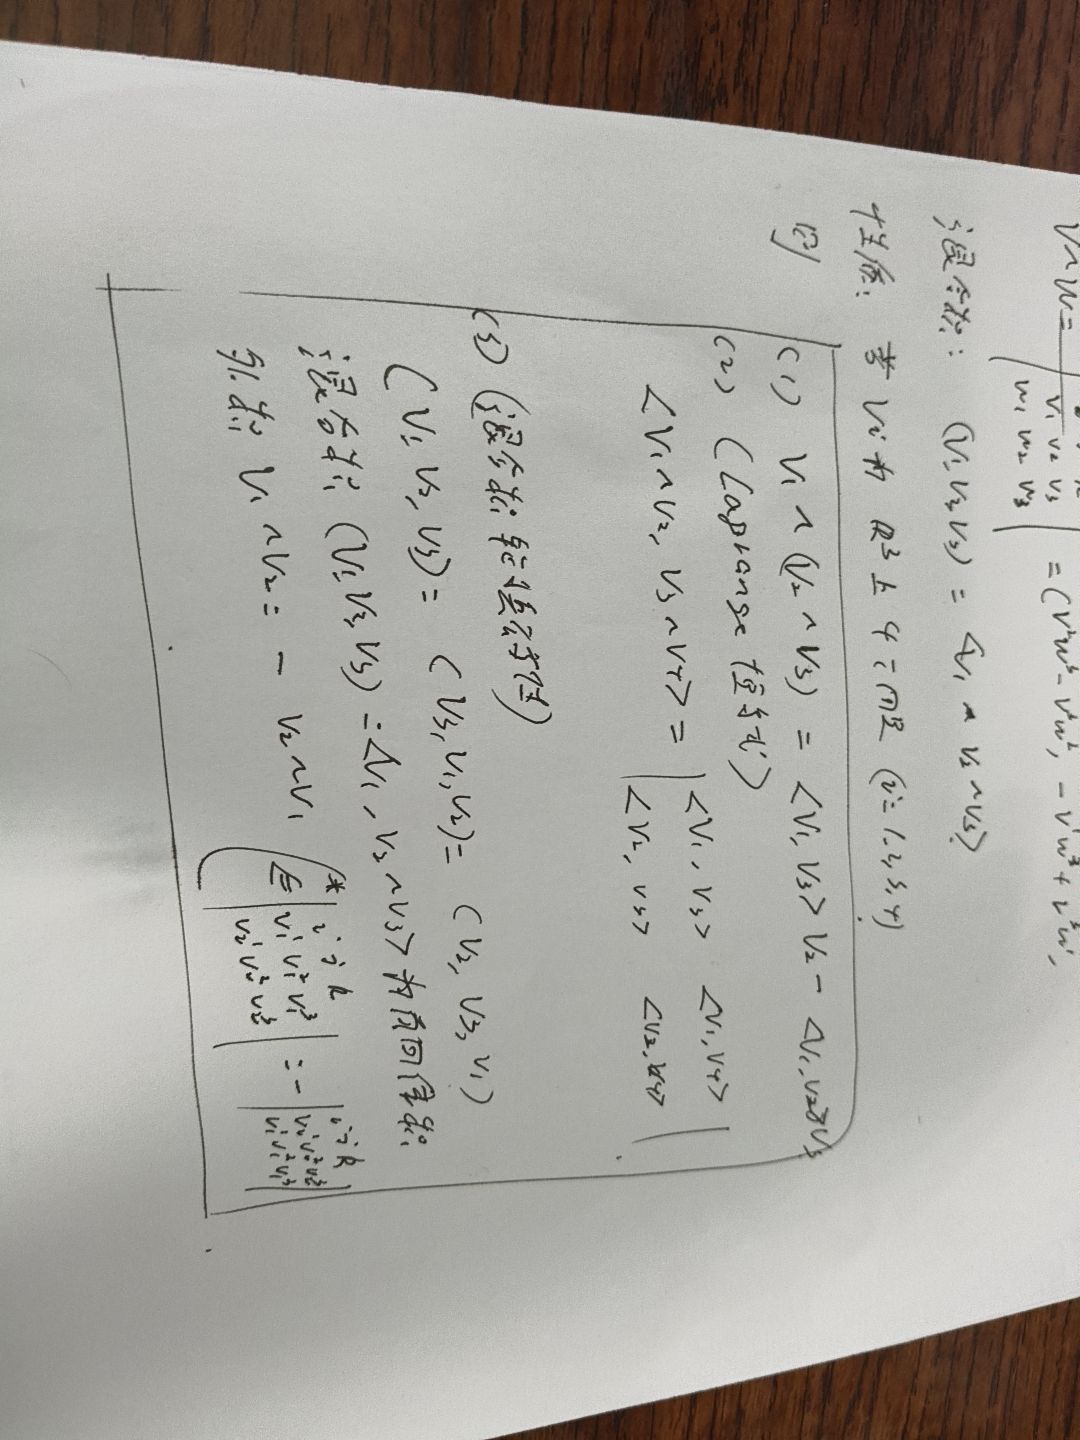 V∧W = | v₁ v₂ v₃ / w₁ w₂ w₃ | = (v²w³ - v³w², - v¹w³ + v³w¹,
混合积: (V₁ V₂ V₃) = <V₁, V₂∧V₃>
性质: 若 Vi 为 R³ 上 向量 (i=1,2,3,4)
则
(1) V₁∧(V₂∧V₃) = <V₁,V₃>V₂ - <V₁,V₂>V₃
(2) (Lagrange 恒等式)
<V₁∧V₂, V₃∧V₄> = | <V₁,V₃> <V₁,V₄> |
| <V₂,V₃> <V₂,V₄> |
(3) (混合积轮换不变性)
(V₁,V₂,V₃) = (V₃,V₁,V₂) = (V₂,V₃,V₁)
混合积 (V₁,V₂,V₃) = <V₁, V₂∧V₃> 为有向体积
外积 V₁∧V₂ = - V₂∧V₁
i j k
| v₁¹ v₁² v₁³ | = - | i j k
v₂¹ v₂² v₂³
v₂¹ v₂² v₂³
v₁¹ v₁² v₁³ |